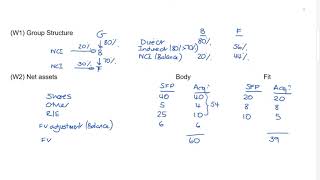 (W1) Group Structure G B F
↓80% Direct 80%
NCI 20%→ B Indirect (80%×70%) 56%
↓70% NCI (Balance) 20% 44%
NCI 30%→ F
(W2) Net assets Body Fit
SFP Acq? SFP Acq?
Shares 40 40 20 20
Other 5 4 54 8 8
R/E 25 10 10 5
FV adjustment (Balance) 6 6
FV 60 39